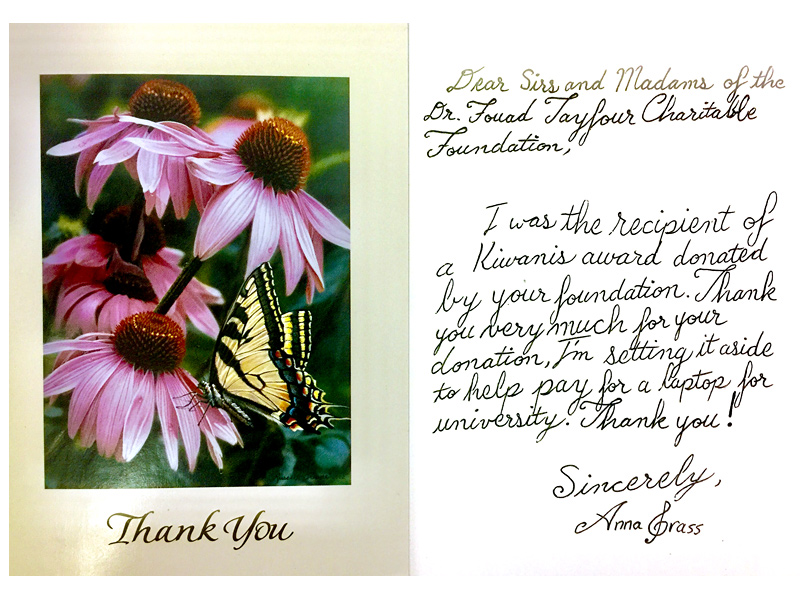 Thank You
Dear Sirs and Madams of the
Dr. Fouad Tayfour Charitable
Foundation,
I was the recipient of
a Kiwanis award donated
by your foundation. Thank
you very much for your
donation, I'm setting it aside
to help pay for a laptop for
university. Thank you!
Sincerely,
Anna Grass